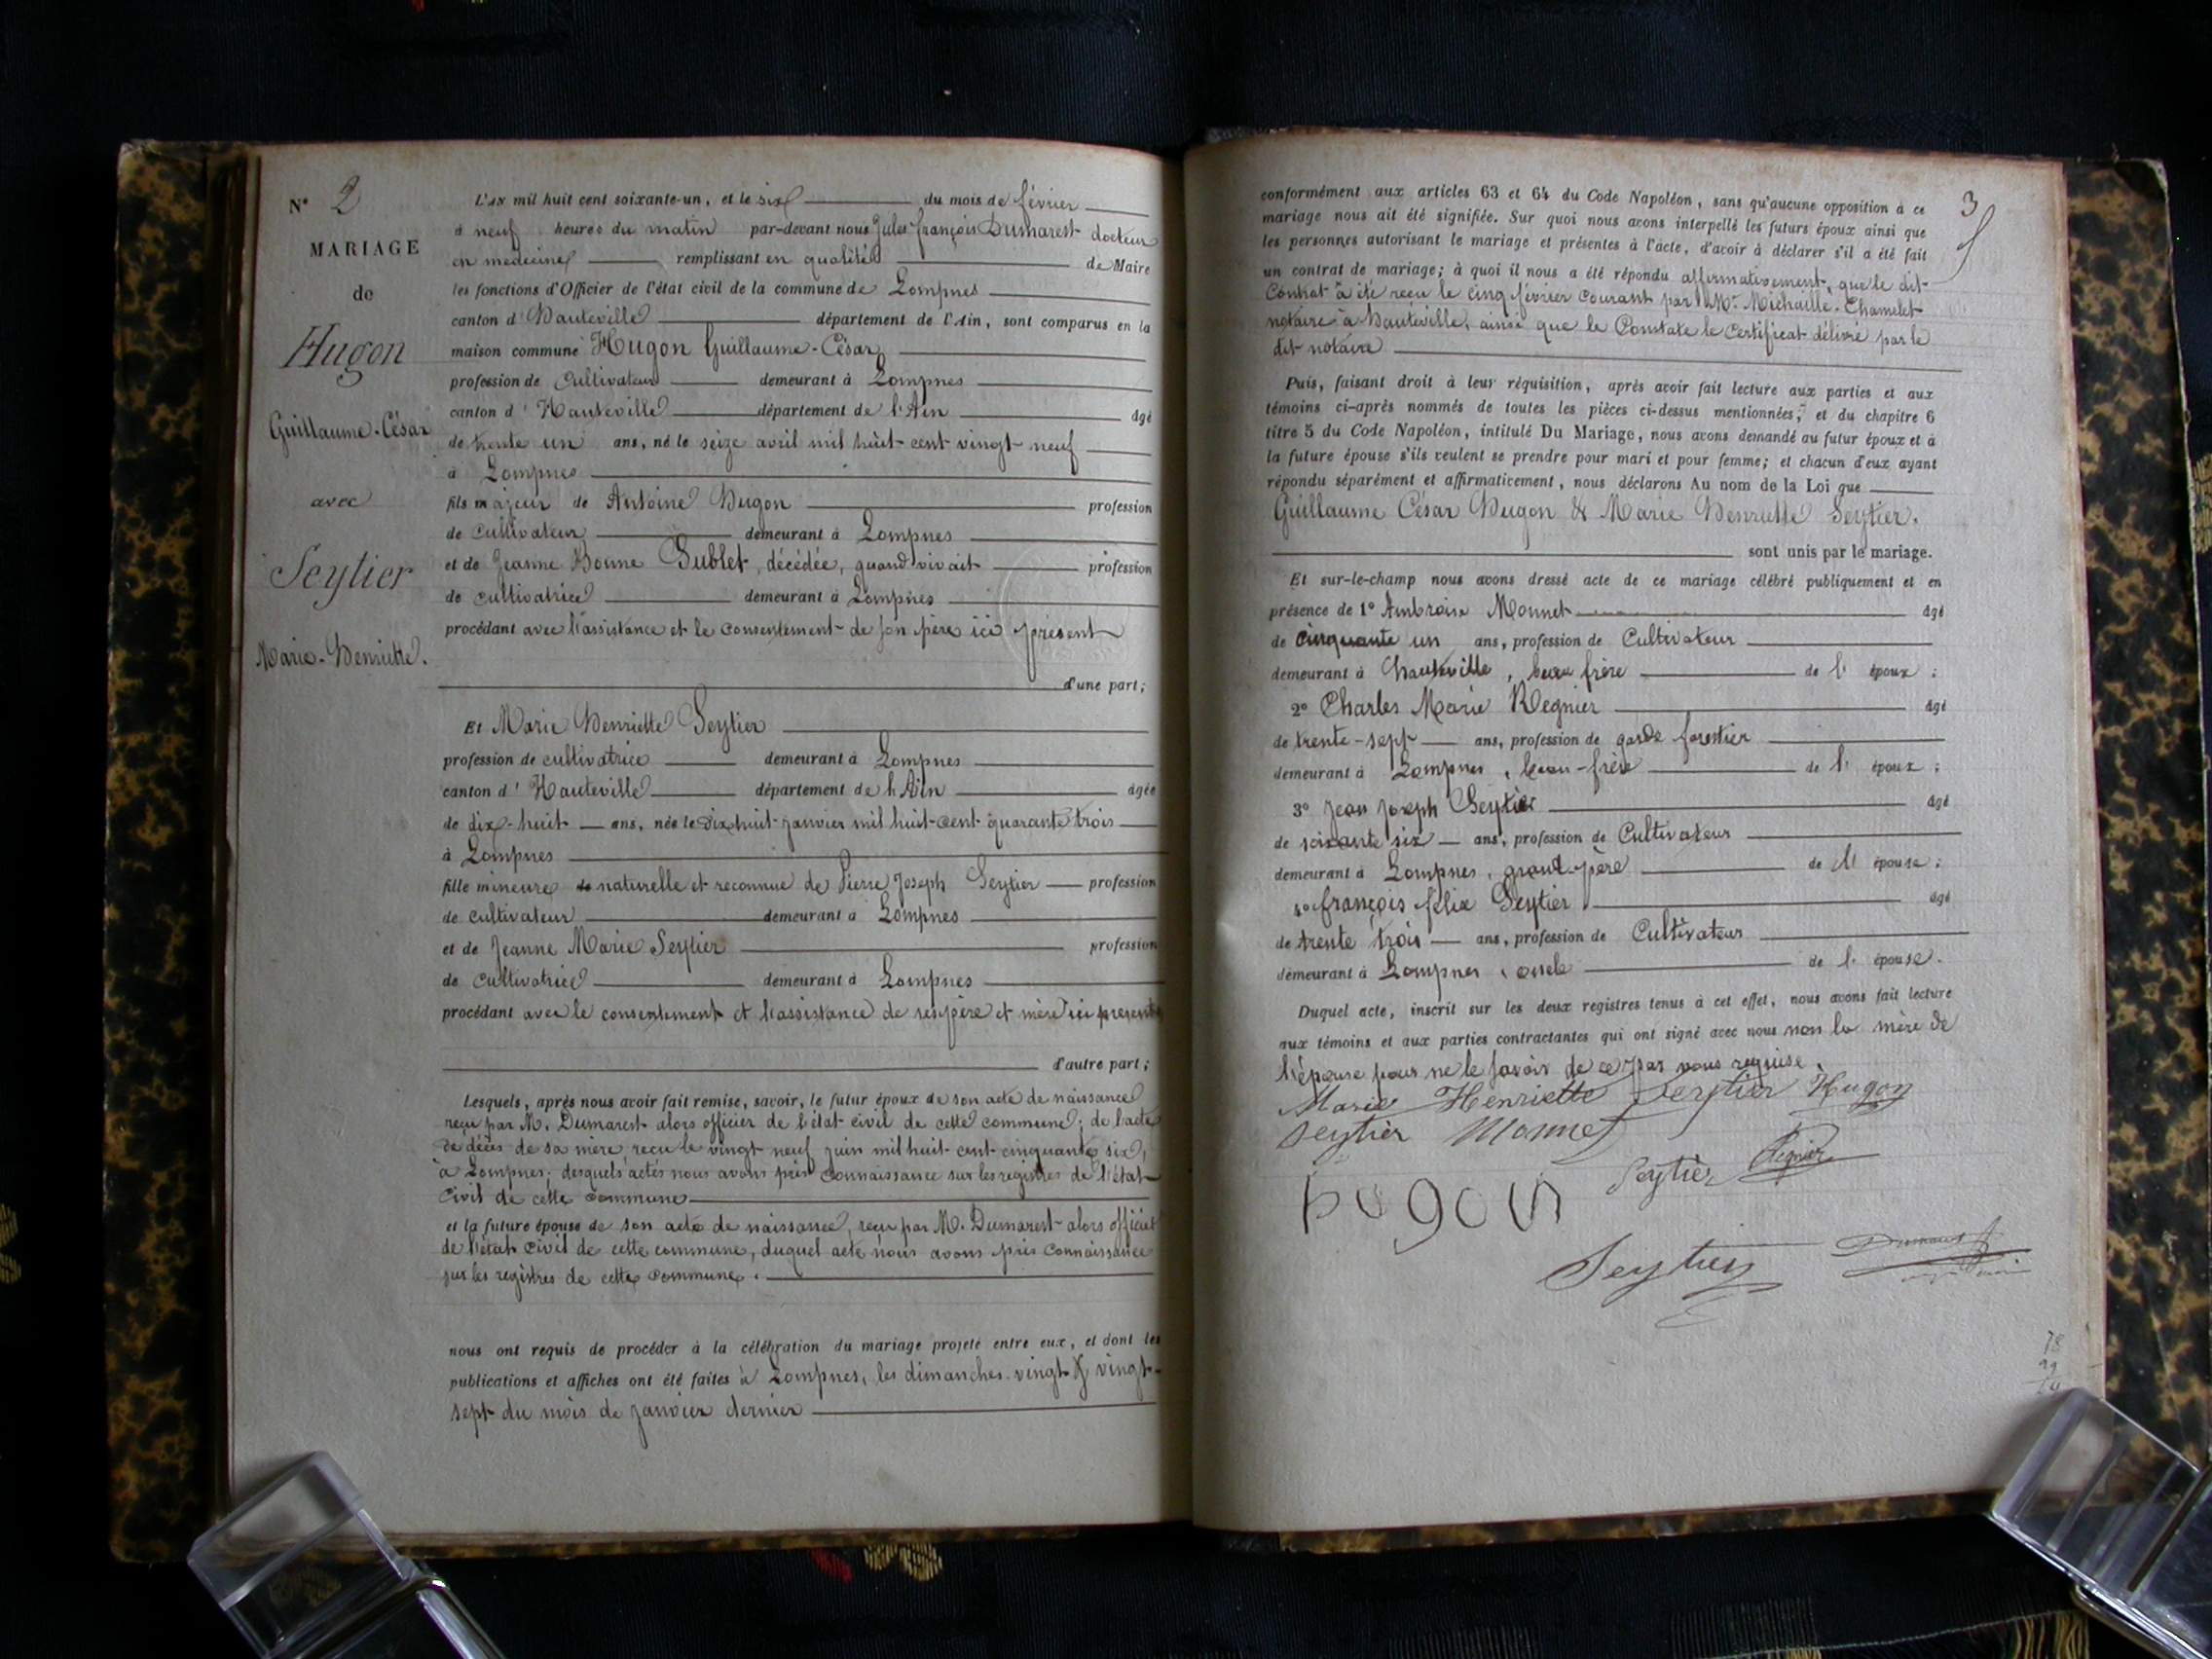 N° 2
MARIAGE
de
Hugon
Guillaume-César
avec
Seytier
Marie-Henriette.
L'AN mil huit cent soixante-un, et le six du mois de février
à neuf heures du matin par-devant nous Jules françois Dumarest docteur
en medecine remplissant en qualité de Maire
les fonctions d'Officier de l'état civil de la commune de Lompnes
canton d'Hauteville département de l'Ain, sont comparus en la
maison commune Hugon Guillaume-César
profession de Cultivateur demeurant à Lompnes
canton d'Hauteville département de l'Ain âgé
de trente un ans, né le seize avril mil huit cent vingt neuf
à Lompnes
fils majeur de Antoine Hugon profession
de Cultivateur demeurant à Lompnes
et de Jeanne Bonne Sublet, décédée, quand vivait profession
de cultivatrice demeurant à Lompnes
procédant avec l'assistance et le consentement de son père ici présent
d'une part;
Et Marie Henriette Seytier
profession de cultivatrice demeurant à Lompnes
canton d'Hauteville département de l'Ain âgée
de dix-huit ans, née le dix huit janvier mil huit cent quarante trois
à Lompnes
fille mineure de naturelle et reconnue de Pierre Joseph Seytier profession
de cultivateur demeurant à Lompnes
et de Jeanne Marie Seytier profession
de Cultivatrice demeurant à Lompnes
procédant avec le consentement et l'assistance de ses père et mère ici présents
d'autre part;
Lesquels, après nous avoir fait remise, savoir, le futur époux de son acte de naissance
reçu par M. Dumarest alors officier de l'état civil de cette commune; de l'acte
de décès de sa mère, reçu le vingt neuf juin mil huit cent cinquante six,
à Lompnes; desquels actes nous avons pris connaissance sur les registres de l'état
Civil de cette commune
et la future épouse de son acte de naissance, reçu par M. Dumarest alors officier
de l'état Civil de cette commune, duquel acte nous avons pris connaissance
sur les registres de cette commune.
nous ont requis de procéder à la célébration du mariage projeté entre eux, et dont les
publications et affiches ont été faites à Lompnes, les dimanches vingt & vingt-
sept du mois de janvier dernier
3
conformément aux articles 63 et 64 du Code Napoléon, sans qu'aucune opposition à ce
mariage nous ait été signifiée. Sur quoi nous avons interpellé les futurs époux ainsi que
les personnes autorisant le mariage et présentes à l'acte, d'avoir à déclarer s'il a été fait
un contrat de mariage; à quoi il nous a été répondu affirmativement, que le dit
Contrat a été reçu le cinq février courant par Me. Michaille-Chamelet
notaire à Hauteville, ainsi que le Constate le certificat délivré par le
dit notaire
Puis, faisant droit à leur réquisition, après avoir fait lecture aux parties et aux
témoins ci-après nommés de toutes les pièces ci-dessus mentionnées, et du chapitre 6
titre 5 du Code Napoléon, intitulé Du Mariage, nous avons demandé au futur époux et à
la future épouse s'ils veulent se prendre pour mari et pour femme; et chacun d'eux ayant
répondu séparément et affirmativement, nous déclarons Au nom de la Loi que
Guillaume César Hugon & Marie Henriette Seytier.
sont unis par le mariage.
Et sur-le-champ nous avons dressé acte de ce mariage célébré publiquement et en
présence de 1° Ambroise Monnet âgé
de cinquante un ans, profession de Cultivateur
demeurant à Hauteville, beau frère de l'époux;
2° Charles Marie Regnier âgé
de trente-sept ans, profession de garde forestier
demeurant à Lompnes, beau-frère de l'époux;
3° Jean Joseph Seytier âgé
de soixante six ans, profession de Cultivateur
demeurant à Lompnes, grand-père de l'épouse;
4° françois félix Seytier âgé
de trente trois ans, profession de Cultivateur
demeurant à Lompnes, oncle de l'épouse.
Duquel acte, inscrit sur les deux registres tenus à cet effet, nous avons fait lecture
aux témoins et aux parties contractantes qui ont signé avec nous non la mère de
l'épouse pour ne le savoir de ce par nous requise.
Marie Henriette Seytier Hugon
Seytier Monnet
Seytier Regnier
hugon
Seytier Dumarest